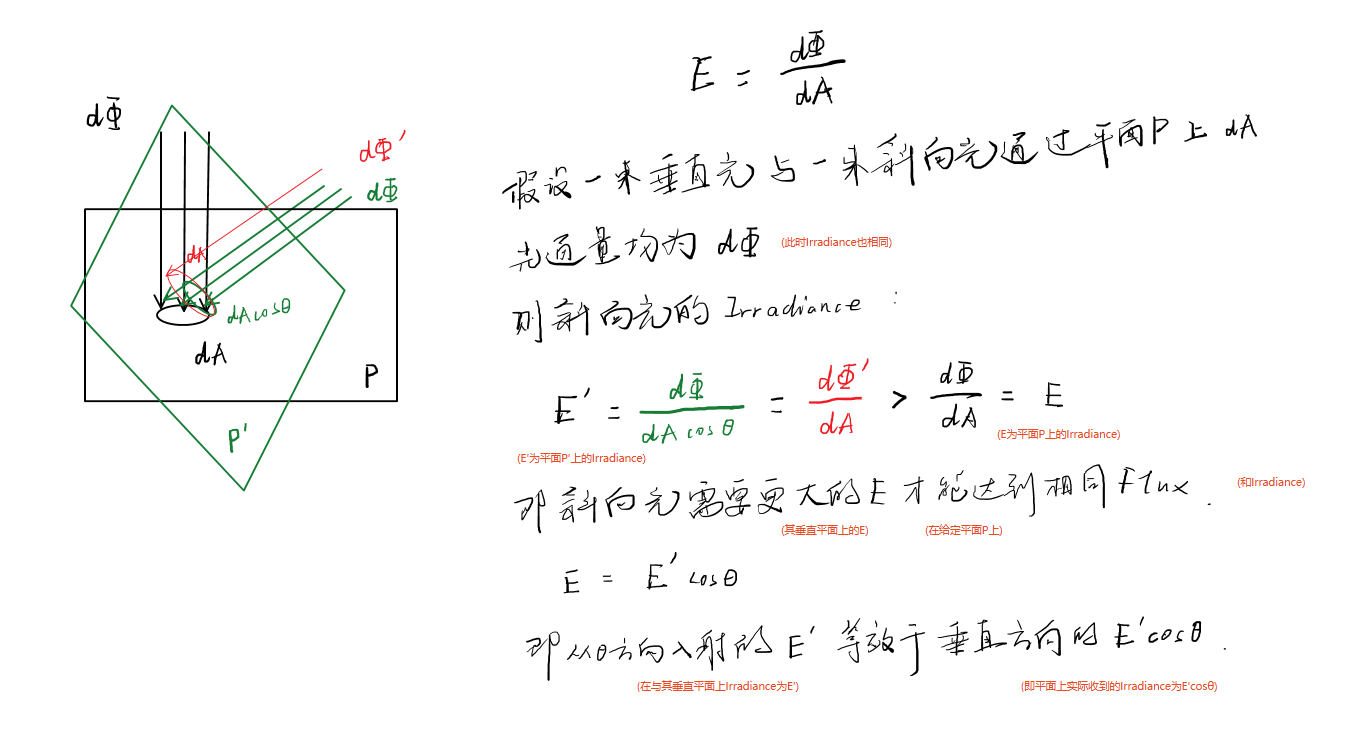 dΦ
dΦ'
dΦ
dA
dA cosθ
dA
P
P'
E = dΦ/dA
假设一束垂直光与一束斜向光通过平面P上dA
光通量均为dΦ (此时Irradiance也相同)
则斜向光的 Irradiance :
E' = dΦ/(dA cosθ) = dΦ'/dA > dΦ/dA = E
(E'为平面P'上的Irradiance) (E为平面P上的Irradiance)
即斜向光需要更大的E才能达到相同Flux. (和Irradiance)
(其垂直平面上的E) (在给定平面P上)
E = E' cosθ
即从θ方向入射的E'等效于垂直方向的E'cosθ.
(在与其垂直平面上Irradiance为E') (即平面上实际收到的Irradiance为E'cosθ)